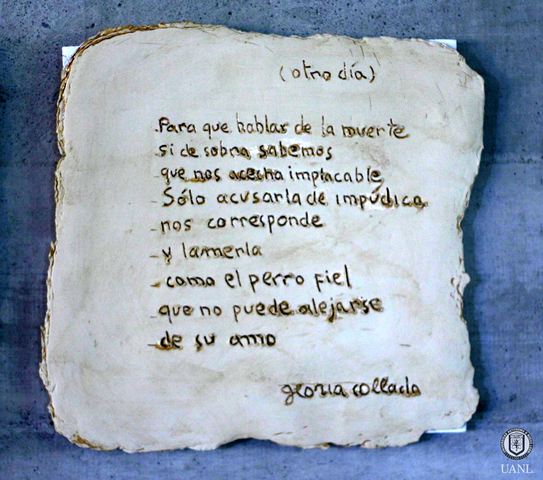 (otro día)
Para que hablar de la muerte
si de sobra sabemos
que nos acecha implacable
Sólo acusarla de impúdica
nos corresponde
y lamerla
como el perro fiel
que no puede alejarse
de su amo
gloria collado
UANL